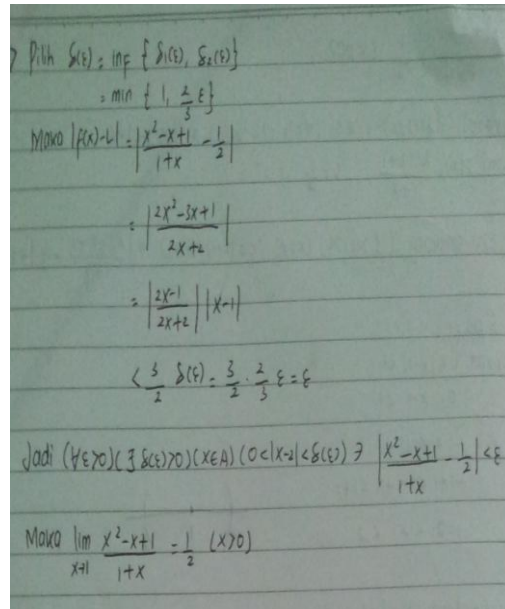 Pilih δ(ε) = inf {δ₁(ε), δ₂(ε)}
= min {1, 2/3 ε}
Maka |f(x)-L| = |(x²-x+1)/(1+x) - 1/2|
= |(2x²-3x+1)/(2x+2)|
= |(2x-1)/(2x+2)| |x-1|
< 3/2 δ(ε) = 3/2 . 2/3 ε = ε
Jadi (∀ε>0)(∃ δ(ε)>0)(x∈A)(0<|x-2|<δ(ε) ∋ |(x²-x+1)/(1+x) - 1/2| < ε
Maka lim x→1 (x²-x+1)/(1+x) = 1/2 (x>0)